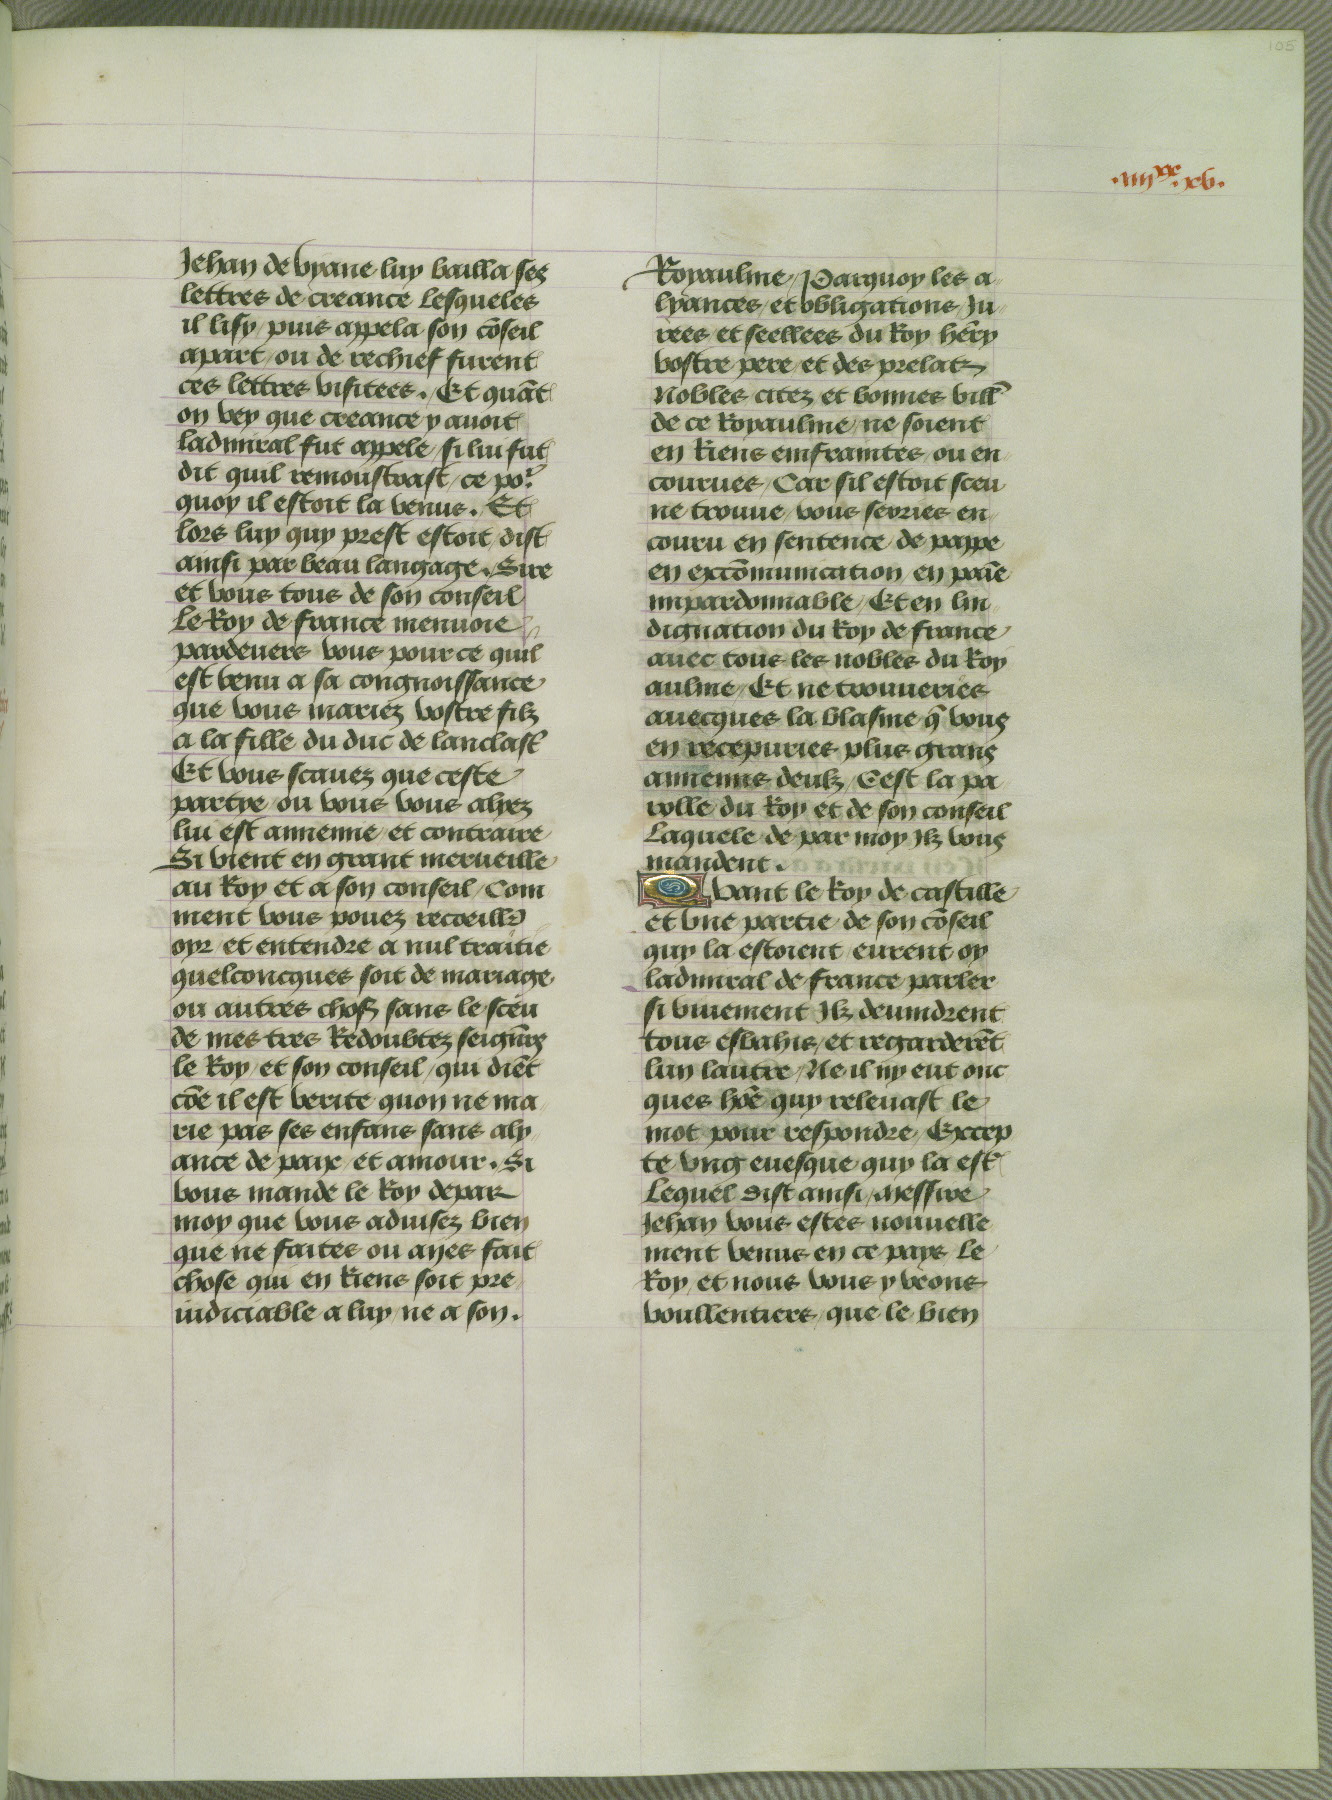 105
.iiijxx.xv.
Jehan de vyane luy bailla ses
lettres de creance Lesqueles
il lisy / puis appela son cōseil
apart / ou de rechief furent
ces lettres visitees . Et quāt
on vey que creance y auoit
ladmiral fut appele / si lui fut
dit quil remonstrast / ce por
quoy il estoit la venus . Et
lors luy quy prest estoit / dist
ainsi par beau langage . Sire
et vous tous de son conseil
Le Roy de france menuoie
pardeuers vous pour ce quil
est venu a sa congnoissance
que vous mariez vostre filz
a la fille du duc de lanclast'
Et vous scauez que ceste
partye / ou vous vous alyez
lui est annemie / et contraire
Si vient en grant merueille
au Roy et a son conseil / Com
ment vous pouez recoeillr̄
oyr / et entendre a nul traitie
quelconcques soit de mariage
ou autres choses sans le sceu
de mes tres Redoubtez seignrs̄
le Roy / et son conseil / qui diēt
cōe il est verite quon ne ma
rie pas ses enfans sans aly
ance de paix / et amour . Si
vous mande le Roy depar
moy que vous aduisez bien
que ne faites ou ayes fait
chose qui en Riens soit pre
iudiciable a luy / ne a son .
Royaulme / Parquoy les a
lyances / et obligations / Ju
rees / et seellees du Roy hēry
vostre pere / et des prelatz
Nobles citez et bonnes vill'
de ce Royaulme / ne soient
en Riens emfraintes / ou en
courues / Car sil estoit sceu
ne trouue / vous seuries en
couru en sentence de pappe
en excōmunication / en paīe
impardonnable / Et en lin
dignation du Roy de france
auec tous les nobles du Roy
aulme / Et ne trouueries
auecques la blasme q̄ vous
en recepuries plus grans
annemis deulz / Cest la pa
rolle du Roy et de son conseil
Laquele de par moy Ilz vous
mandent .
Quant le Roy de castille
et vne partie de son cōseil
quy la estoient eurent oy
ladmiral de france parler
si viuement Ilz deuindrent
tous esbahis / et regarderēt
lun lautre / Ne il ny eut onc
ques hōe quy releuast le
mot pour respondre / Excep
te vng euesque quy la est'
Lequel dist ainsi / Messire
Jehan vous estes nouuelle
ment venus en ce pays Le
Roy / et nous vous y veons
voullentiers / que le bien